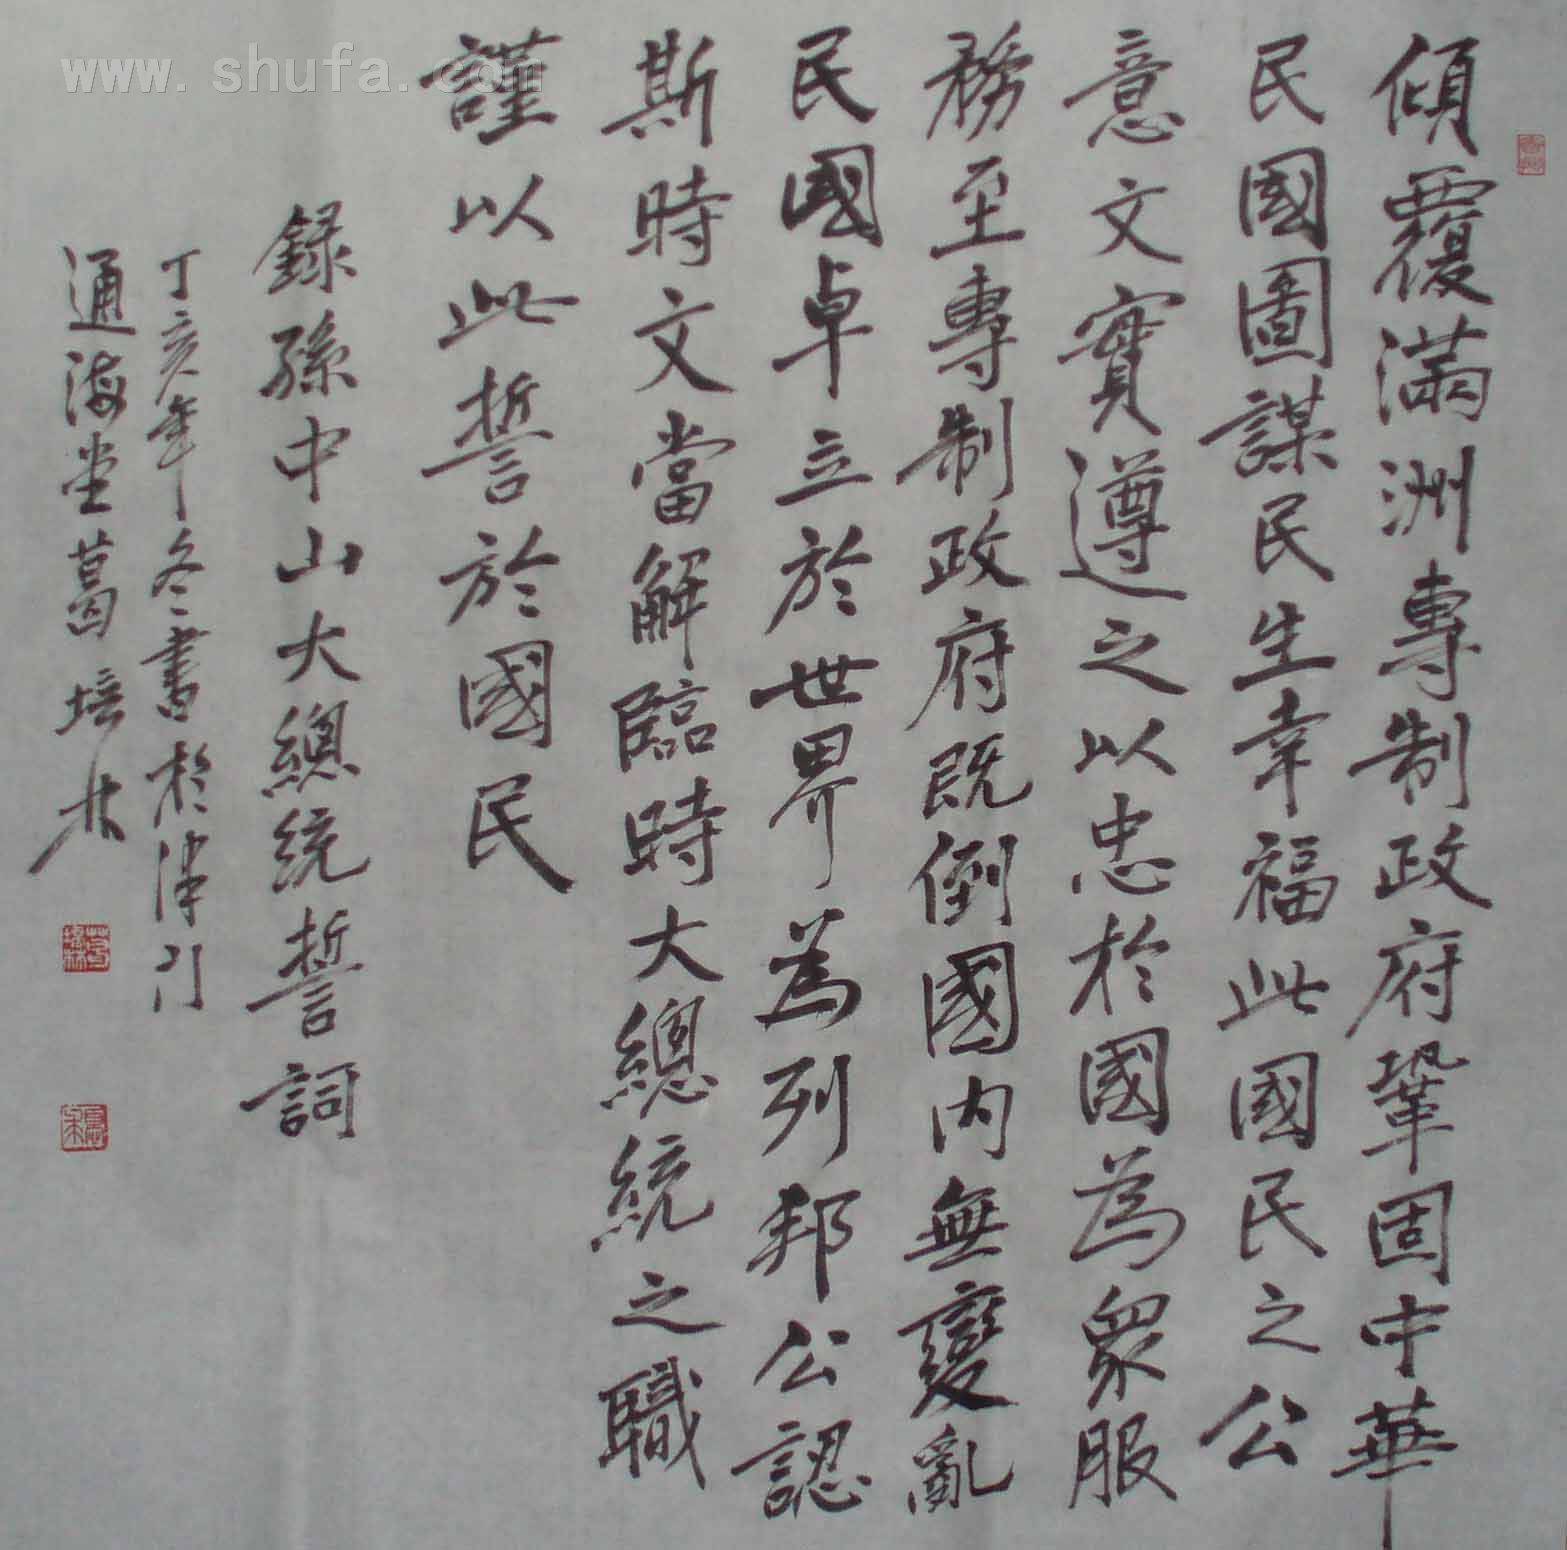 傾覆滿洲專制政府鞏固中華
民國圖謀民生幸福此國民之公
意文實遵之以忠於國為衆服
務至專制政府既倒國内無變亂
民國卓立於世界為列邦公認
斯時文當解臨時大總統之職
謹以此誓於國民
録孫中山大總統誓詞
丁亥年冬書於津门
通海堂葛培林
www.shufa.com